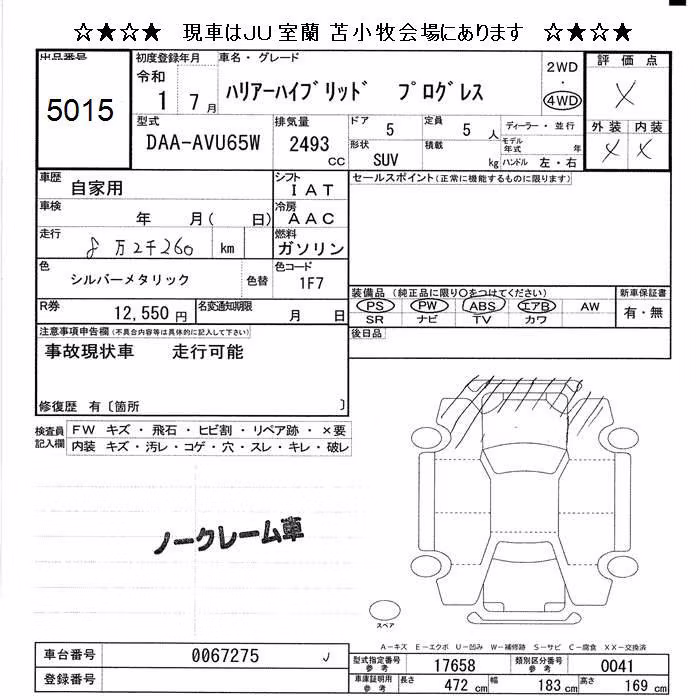 ☆★☆★ 現車はJU室蘭 苫小牧会場にあります ☆★☆★
出品番号 初度登録年月 車名・グレード 2WD 評価点
5015 令和 1 7月 ハリアーハイブリッド プログレス ・ 4WD X
型式 排気量 ドア 定員 ディーラー・並行 外装 内装
DAA-AVU65W 2493 CC 5 5人 モデル年式 年 X X
形状 SUV 積載 kg ハンドル 左・右
車歴 自家用 シフト IAT セールスポイント(正常に機能するものに限ります)
車検 年 月( 日) 冷房 AAC
走行 8万2千260 km 燃料 ガソリン
色 シルバーメタリック 色替 色コード 1F7
装備品 (純正品に限り○をつけてください) 新車保証書
PS PW ABS エアB AW 有・無
SR ナビ TV カワ
R券 12,550円 名変通知期限 月 日
後日品
注意事項申告欄(不具合内容等は具体的に記入して下さい)
事故現状車 走行可能
修復歴 有〔箇所 〕
検査員記入欄 FW キズ・飛石・ヒビ割・リペア跡・×要
内装 キズ・汚レ・コゲ・穴・スレ・キレ・破レ
ノークレーム車
スペア
A-キズ E-エクボ U-凹み W-補修跡 S-サビ C-腐食 XX-交換済
車台番号 0067275 レ 型式指定番号 参考 17658 類別区分番号 参考 0041
登録番号 車庫証明用 参考 長さ 472 cm 幅 183 cm 高さ 169 cm